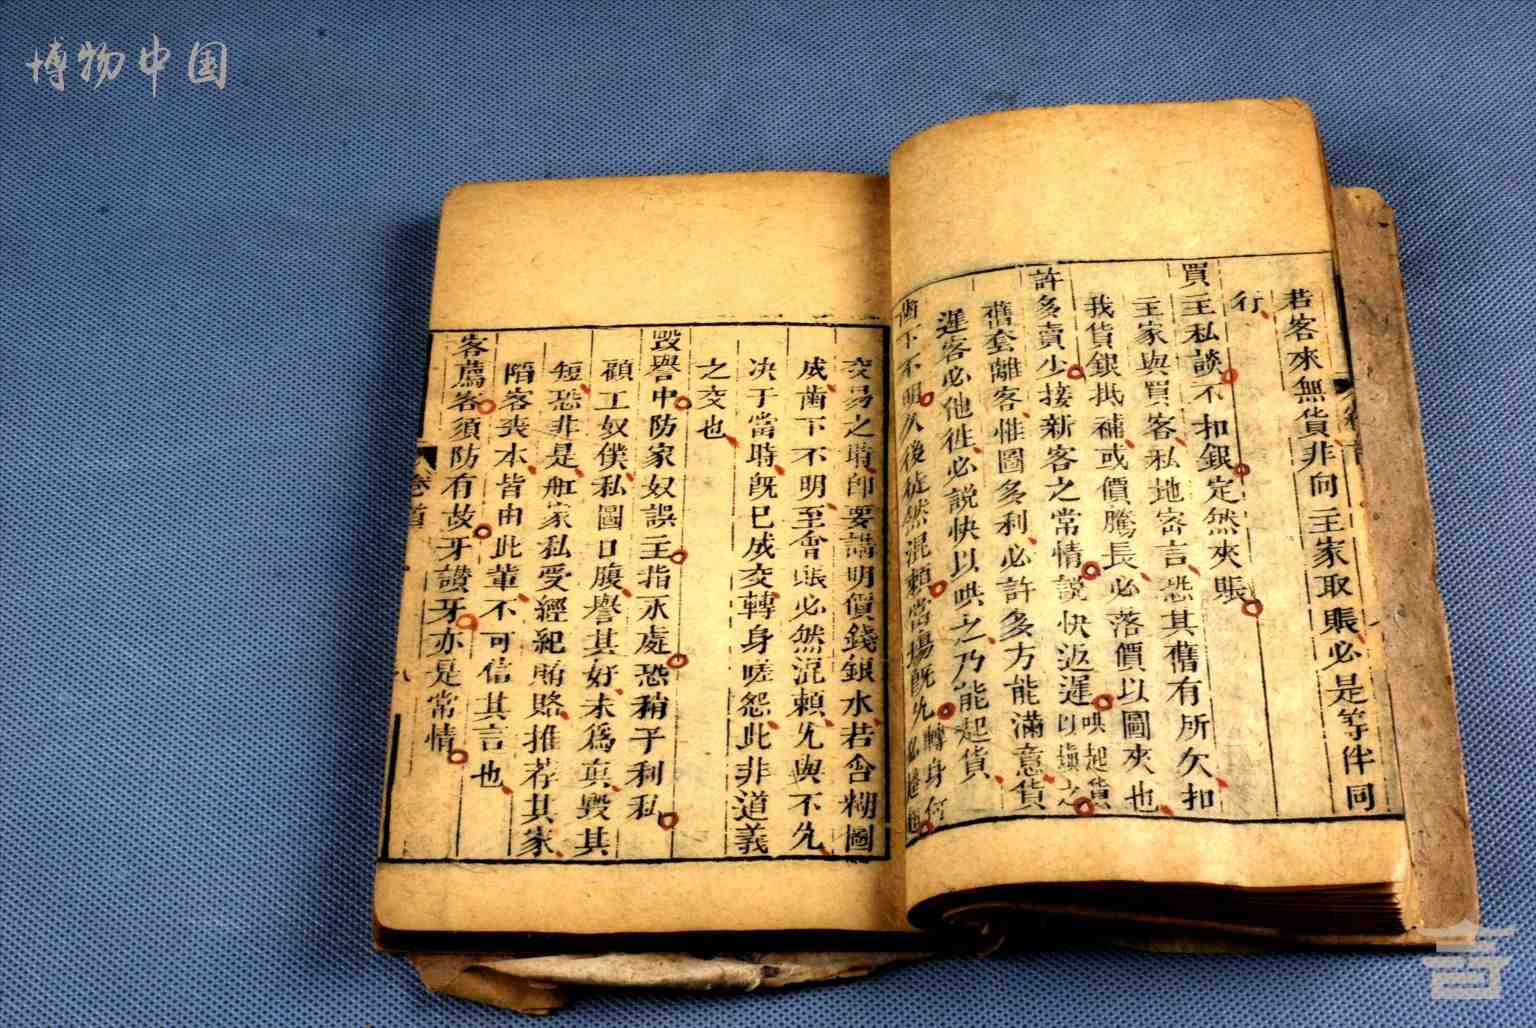 博物中国
若客來無貨非向主家取賬必是等伴同
行
買主私談不扣銀定然夾賬
主家與買客私地密言恐其舊有所欠扣
我貨銀抵補或價騰長必落價以圖夾也
許多賣少接新客之常情說快返遲以哄起貨填之
舊套離客惟圖多利必許多方能滿意貨
遲客必他徃必說快以哄之乃能起貨
當下不明久後徒然混賴當場既允轉身何必
交易之時卽要講明價錢銀水若含糊圖
成當下不明至會賬必然混賴允與不允
决于當時既已成交轉身嗟怨此非道義
之交也
毀譽中防家奴誤主指示處恐稍子利私
顧工奴僕私圖口腹譽其好未爲真毀其
短恐非是舡家私受經紀賄賂推荐其家
陷客喪本皆由此輩不可信其言也
客薦客須防有故牙讃牙亦是常情
卷首
八